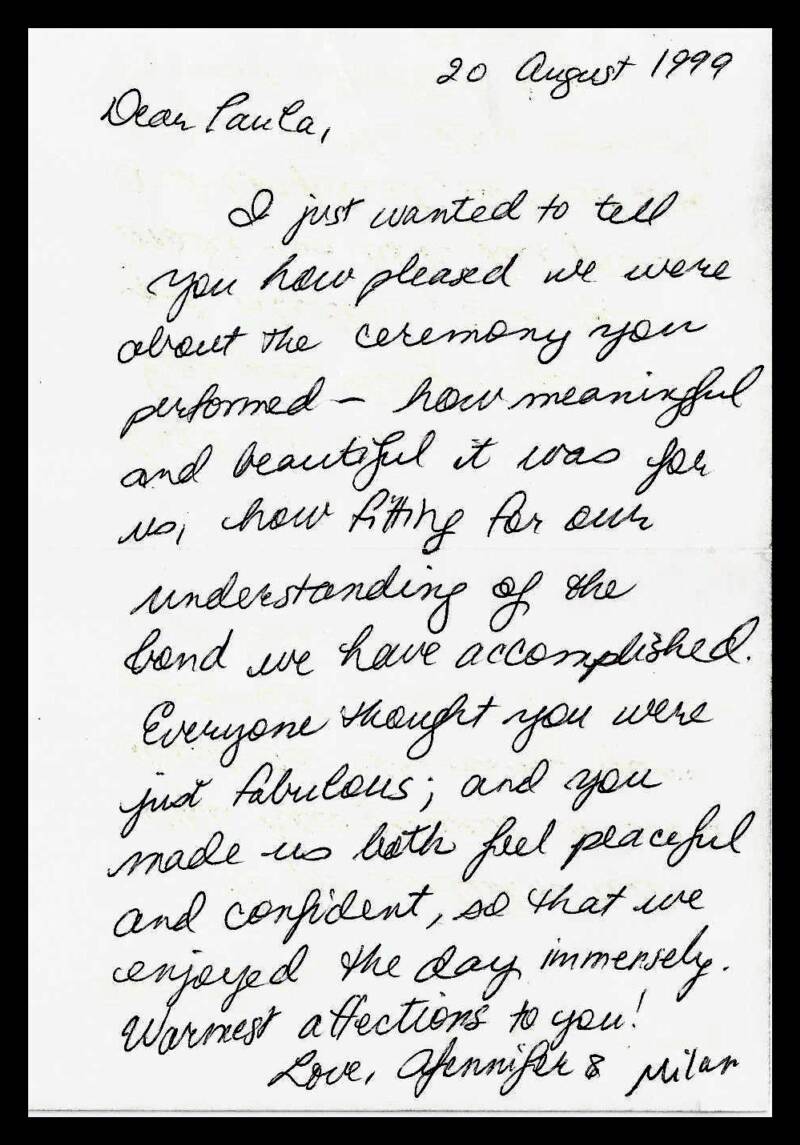 20 August 1999
Dear Paula,
I just wanted to tell
you how pleased we were
about the ceremony you
performed — how meaningful
and beautiful it was for
us, how fitting for our
understanding of the
bond we have accomplished.
Everyone thought you were
just fabulous; and you
made us both feel peaceful
and confident, so that we
enjoyed the day immensely.
Warmest affections to you!
Love, Jennifer & Milan